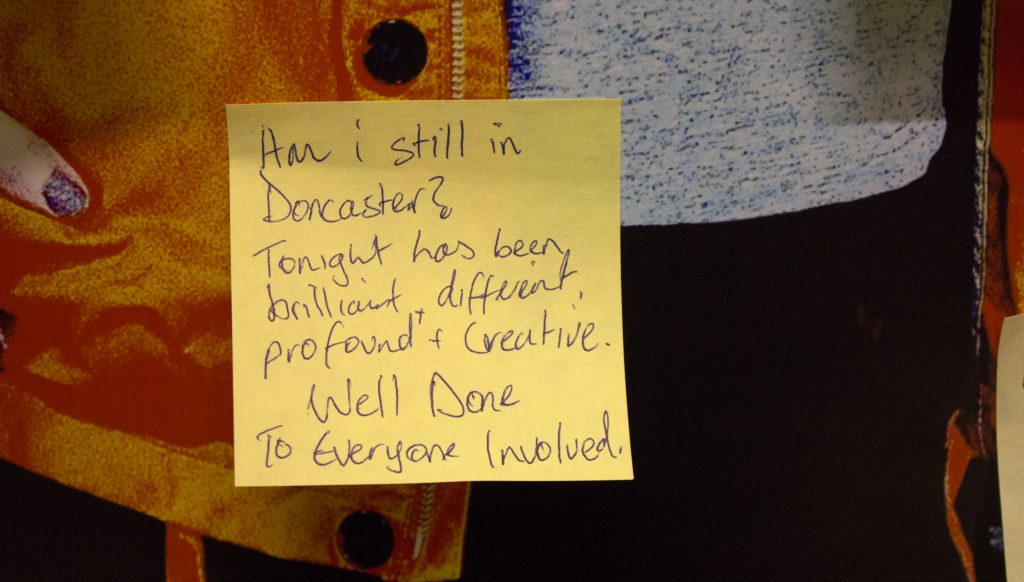 Am i still in
Doncaster?
Tonight has been
brilliant, different,
profound + Creative.
Well Done
To Everyone Involved.